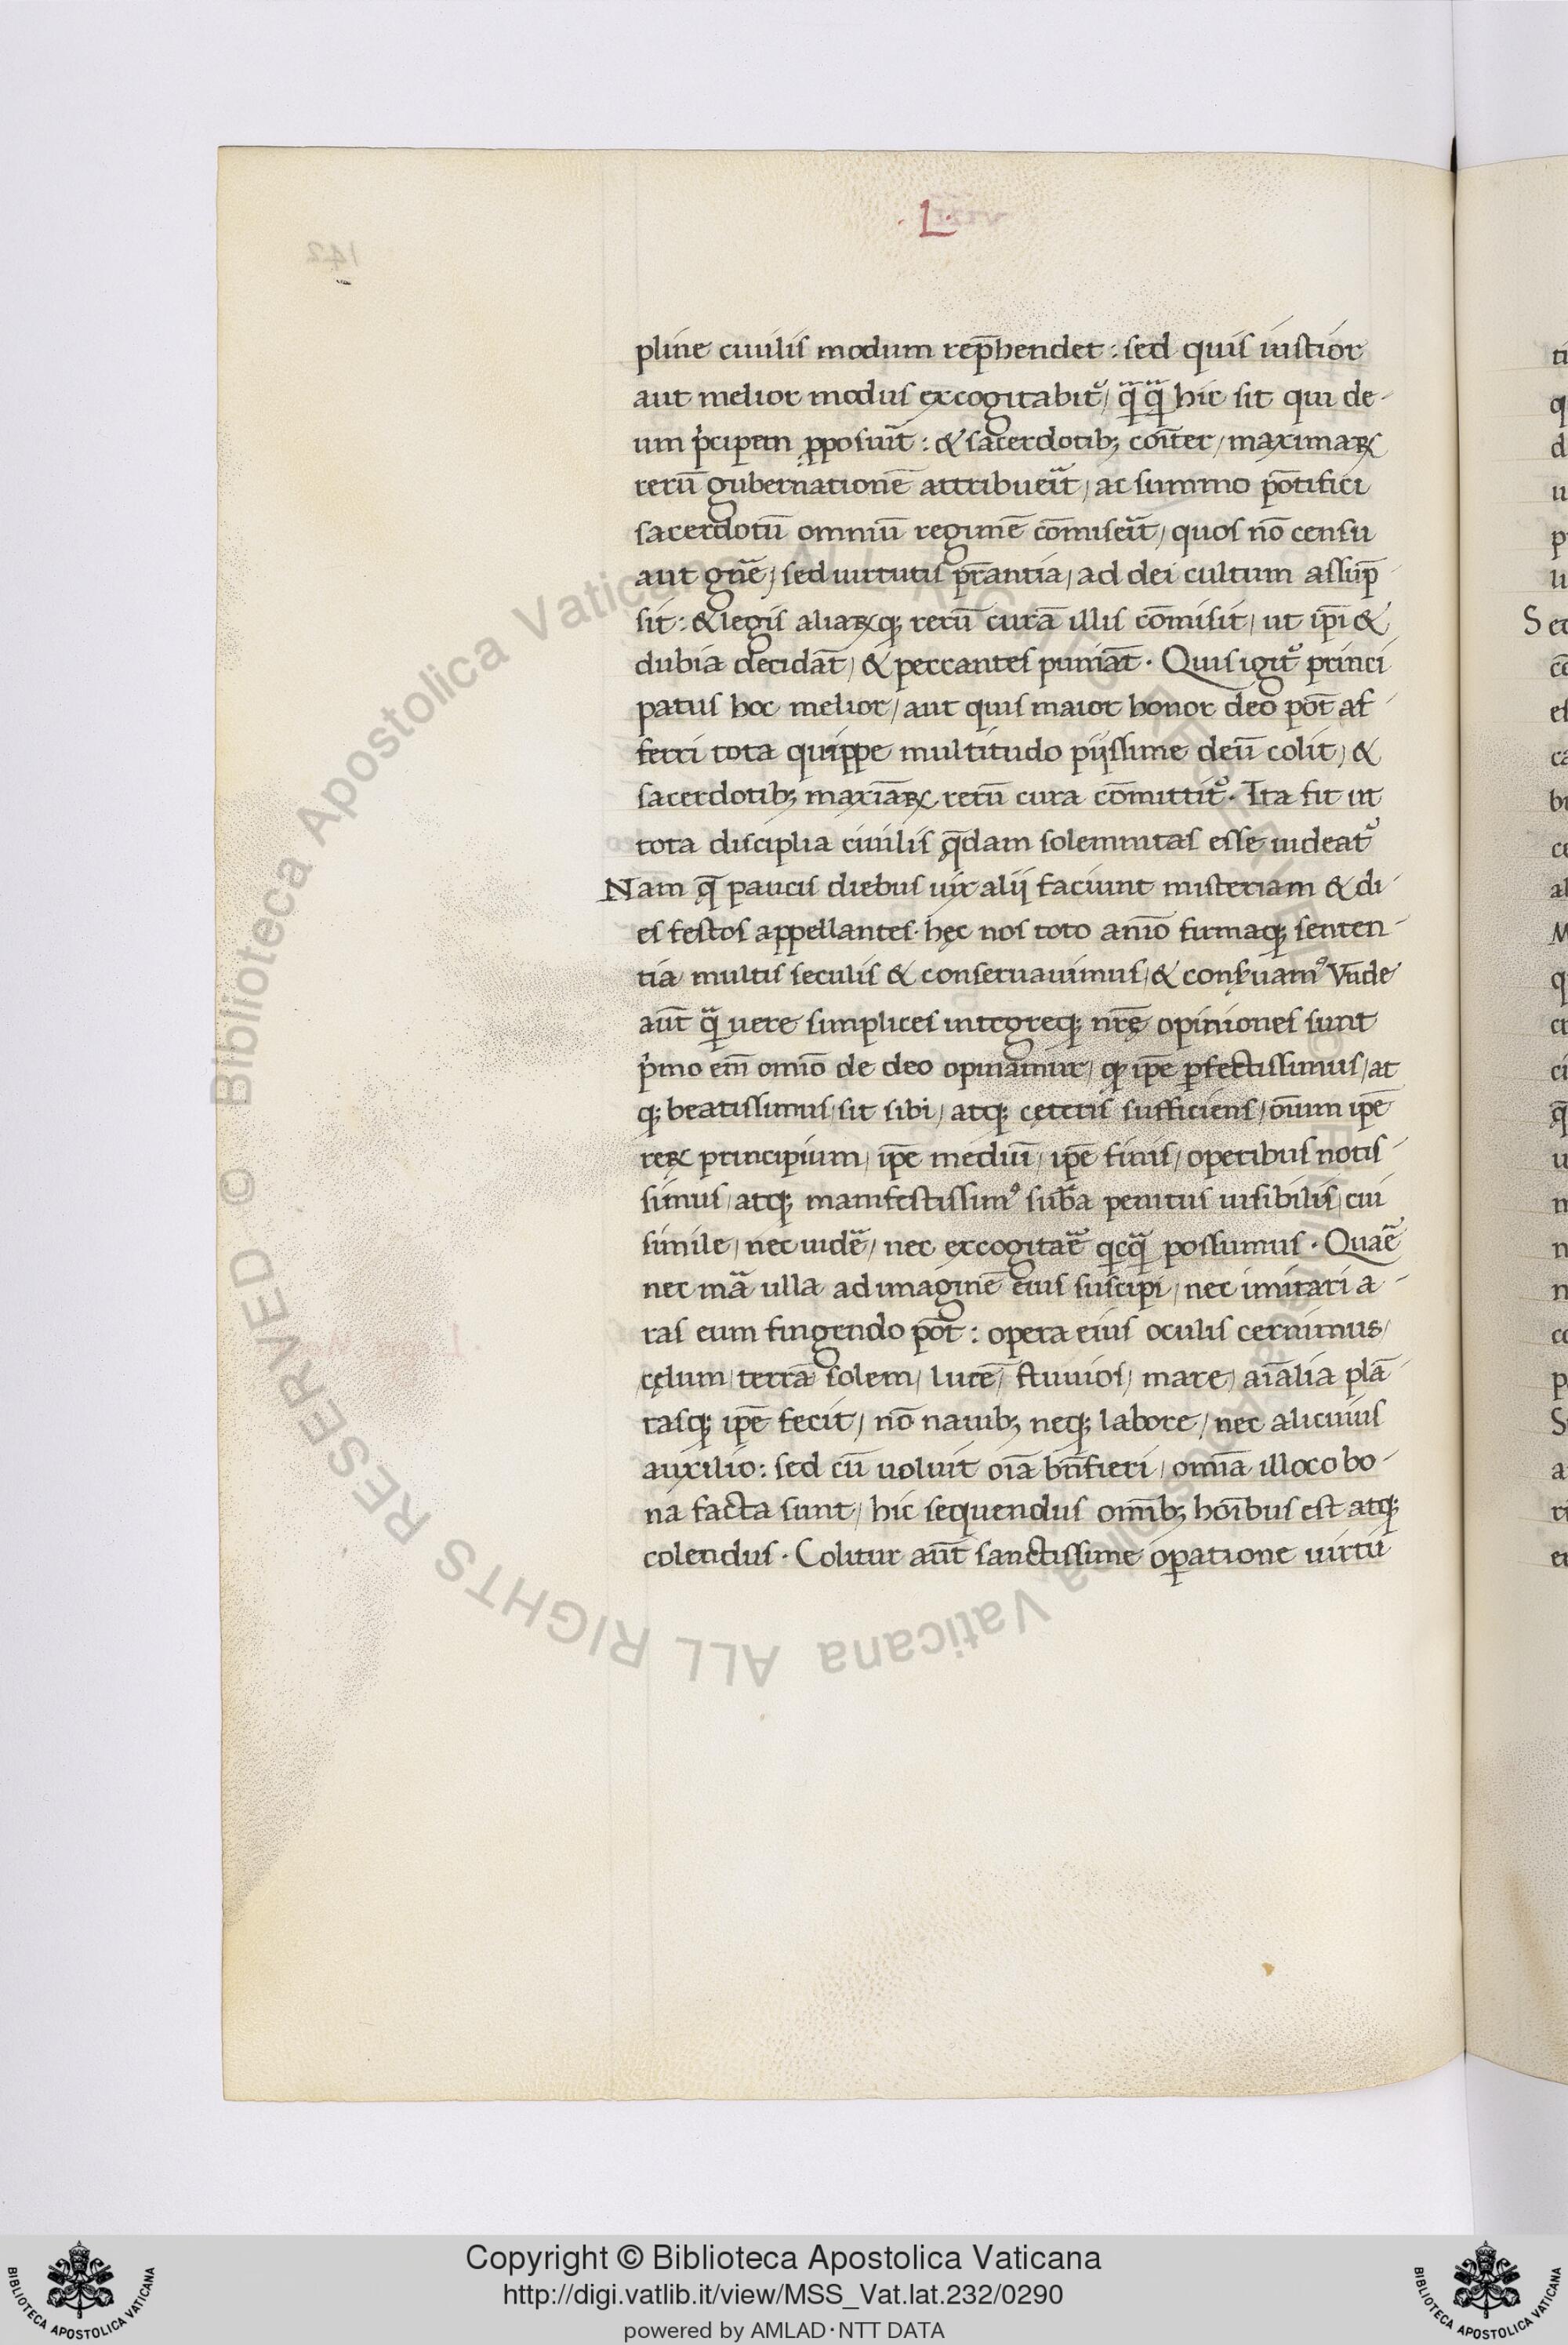 .L.
pline ciuilis modum rep̄hendet: sed quis iustior
aut melior modus excogitabit᷑/ qᷓqᷓ hic sit qui de-
um pͥcipem ꝓposuit̄: & sacerdotib; coīter/ maximaꝝ
rerū gubernationē attribueīt/ ac summo pōtifici
sacerdotū omniū regimē cōmiseīt/ quos nō censu
aut gn̄e/ sed uirtutis pr̄antia/ ad dei cultum assūp̄
sit: & legis aliaꝝq; rerū curā illis cōmisit/ ut ip̄i &
dubia decidāt/ & peccantes puniāt. Quis igit᷑ princi
patus hoc melior/ aut quis maior honor deo pōt af-
ferri tota quippe multitudo pijssime deū colit/ &
sacerdotib; maxīaꝝ rerū cura cōmittit᷑. Ita fit ut
tota disciplīa ciuilis q̄dam solemnitas esse uideat᷑
Nam q̄ paucis diebus uix alij faciunt misteriam & di-
es festos appellantes. hęc nos toto anīo firmaq; senten-
tia multis seculis & conseruauimus/ & conẜuamꝰ Vnde
aūt qᷓ uere simplices integreq; nr̄ę opiniones sunt
pͥmo em̄ omīo de deo opinamur/ ꝙ ip̄e ꝑfectissimus/ at
q; beatissimus/ sit sibi/ atq; cęteris sufficiens/ oīum ip̄e
reꝝ principium/ ip̄e mediū/ ip̄e finis/ operibus notis-
simus/ atq; manifestissimꝰ sub̄a penitus uisibilis/ cui
simile/ nec uidē/ nec excogitaē qͥcqᷓ possumus. Quaē
nec mā ulla ad imaginē eius suscipi/ nec imitari a-
ras eum fingendo pōt: opera eius oculis cernimus/
cęlum/ terrā solem/ lucē/ fluuios/ mare/ aīalia plā
tasq; ip̄e fecit/ nō nauib; neq; labore/ nec alicuius
auxilio: sed cū uoluit oīa bn̄ fieri/ omīa illoco bo-
na facta sunt/ hic sequendus omīb; hoībus est atq;
colendus. Colitur aūt sanctissime oꝑatione uirtu
Copyright © Biblioteca Apostolica Vaticana
http://digi.vatlib.it/view/MSS_Vat.lat.232/0290
powered by AMLAD·NTT DATA